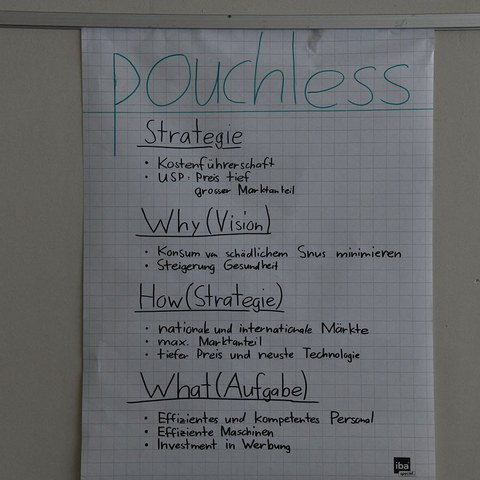 pouchless
Strategie
• Kostenführerschaft
• USP: Preis tief
grosser Marktanteil
Why (Vision)
• Konsum von schädlichem Snus minimieren
• Steigerung Gesundheit
How (Strategie)
• nationale und internationale Märkte
• max. Marktanteil
• tiefer Preis und neuste Technologie
What (Aufgabe)
• Effizientes und kompetentes Personal
• Effiziente Maschinen
• Investment in Werbung
iba